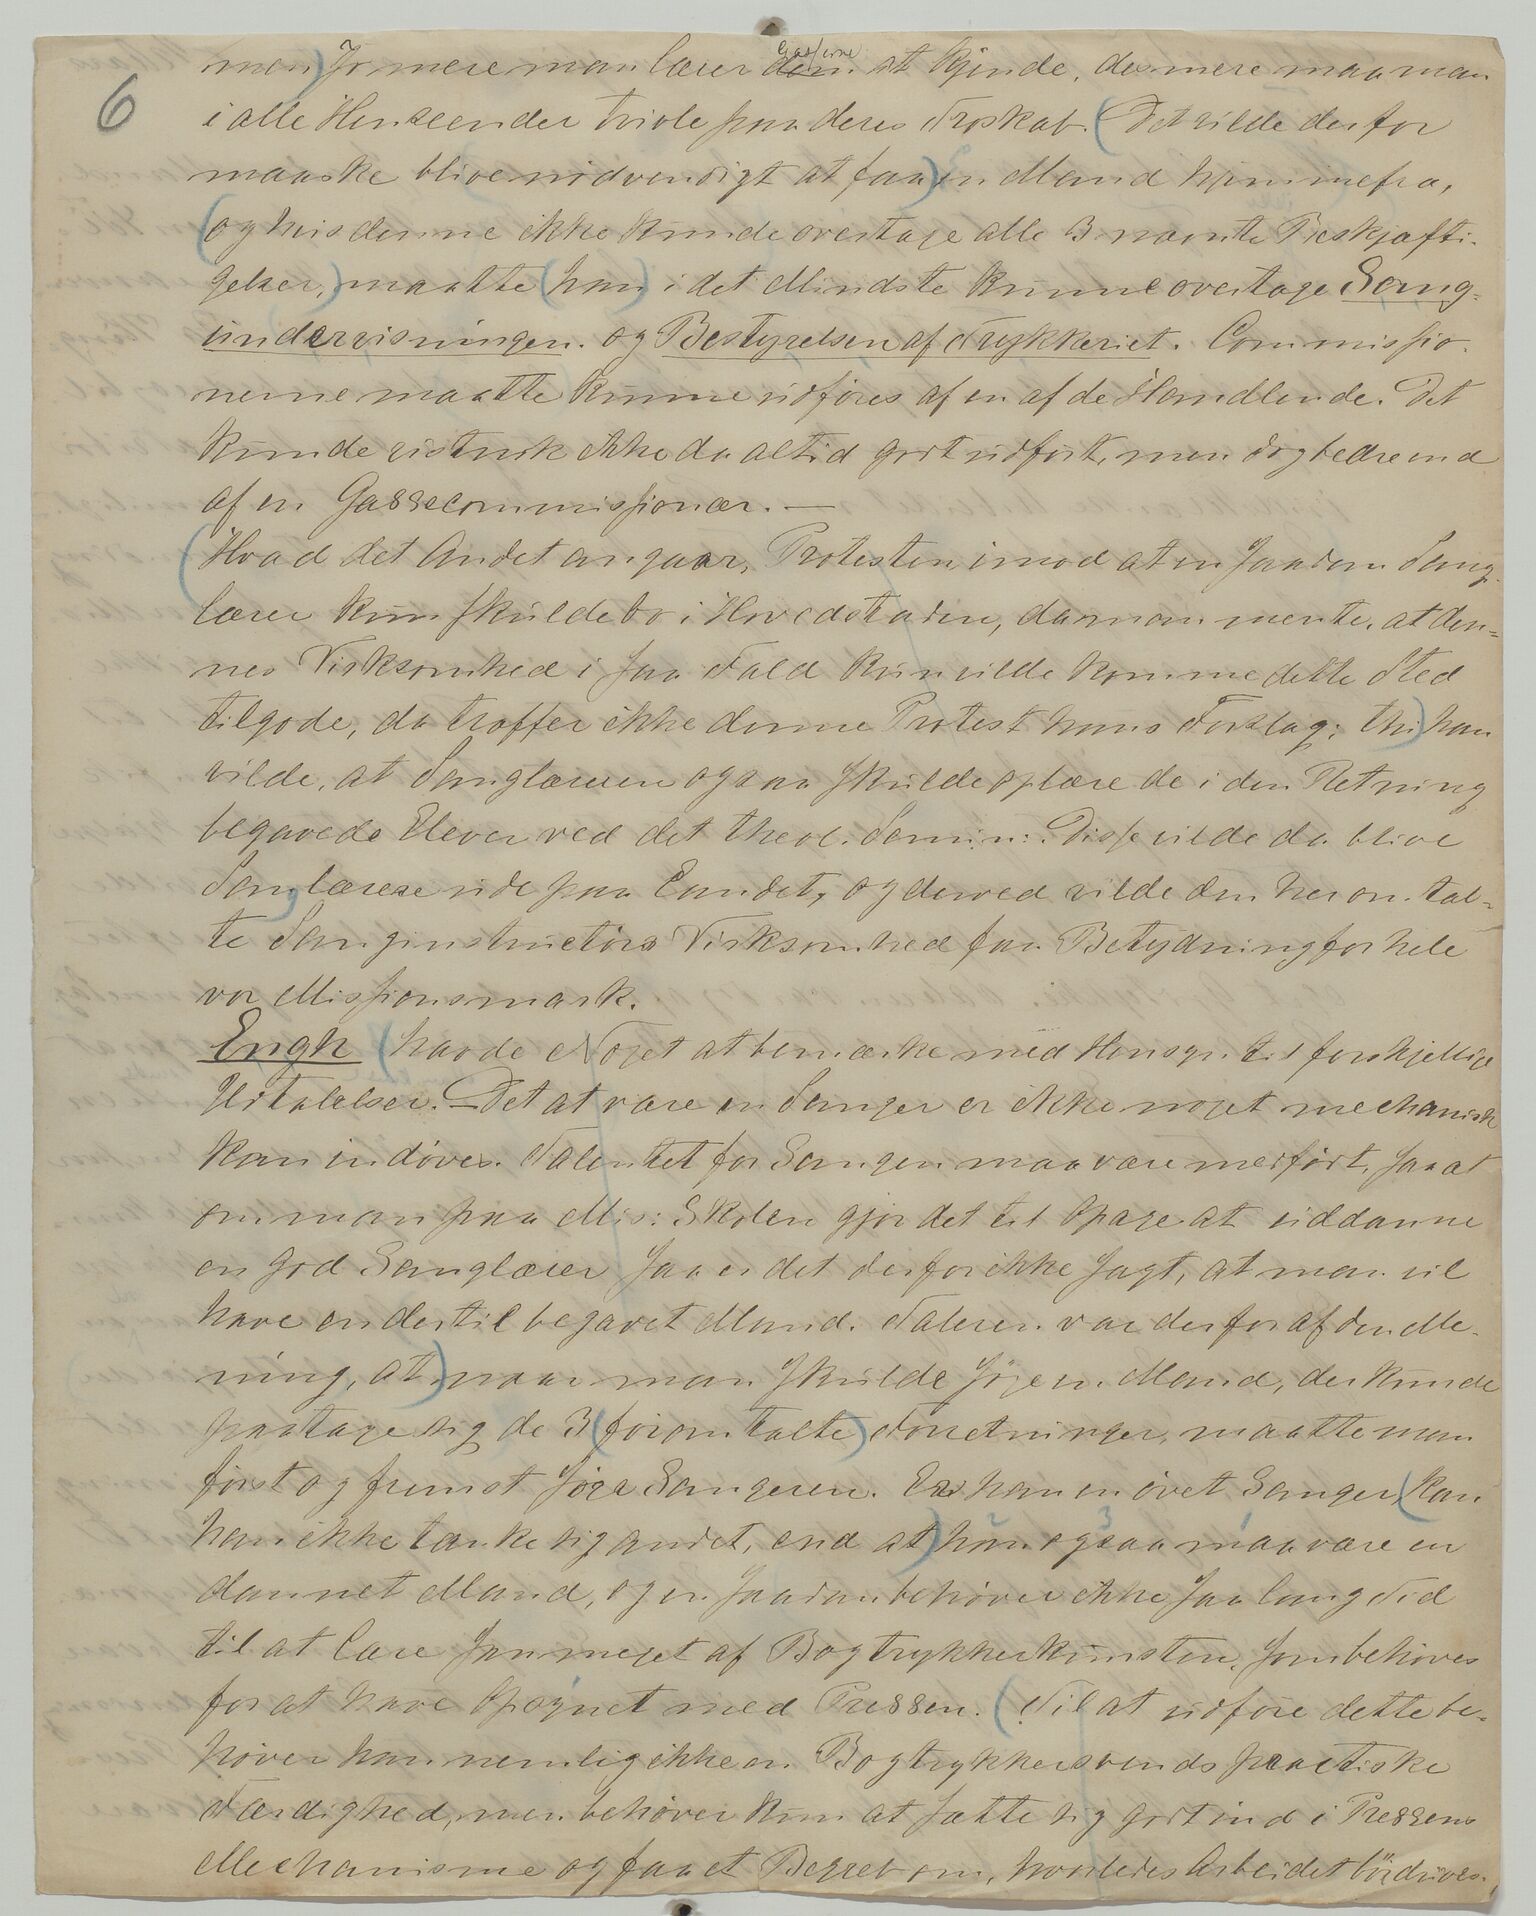 6
Gasserne
men) Jo mere man lærer dem at kjende, des mere maa man
i alle Henseender tvivle paa deres Troskab. (Det vilde derfor
maaske blive nødvendigt at faa) en Mand hjemmefra,
(og hvis denne ikke kunde overtage alle 3 nævnte Beskjæfti-
gelser,) maatte (han) i det Mindste kunne overtage Sang-
undervisningen og Bestyrelsen af Trykkeriet. Commissio-
nerne maatte kunne udføres af en af de Handlende. Det
kunde vistnok ikke da altid godt udført, men dog bedre end
af en Gassecommissionær. —
(Hvad det Andet angaar, Protesten imod at en saadan Sang-
lærer kun skulde bo i Hovedstaden, da man mente, at den-
nes Virksomhed i saa Fald kun vilde komme dette Sted
tilgode, da træffer ikke denne Protest hans Forslag; thi) han
vilde, at Sanglæreren ogsaa skulde oplære de i den Retning
begavede Elever ved det theol. Semin:. Disse vilde da blive
Sanglærere ude paa Landet, og derved vilde den her omtal-
te Sanginstructørs Virksomhed faa Betydning for hele
vor Missionsmark.
Engh (havde Noget at bemærke med Hensyn til forskjellige
Udtalelser. — Det at være en Sanger er ikke noget mechanisk
kan indøves. Talentet for Sangen maa være medført, saa at
om man paa Mis: Skolen gjør det til Opgave at uddanne
en god Sanglærer saa er det derfor ikke sagt, at man vil
have en dertil begavet Mand. Taleren var derfor af den Me-
ning, at) naar man skulde søge en Mand, der kunde
paatage sig de 3 (føromtalte) Forretninger, maatte man
først og fremst søge Sangeren. Er han en øvet Sanger, (kan
han ikke tænke sig andet, end at) han ogsaa maa være en
dannet Mand, og en saadan behøver ikke saa lang Tid
til at lære saa meget af Bogtrykkerkunsten, som behøves
for at have Opsynet med Pressen. (Til at udføre dette be-
høver han nemlig ikke en Bogtrykkersvends practiske
Færdighed, men behøver kun at sætte sig godt ind i Pressens
Mechanisme og faa et Begreb om, hvorledes Arbeidet bør drives.